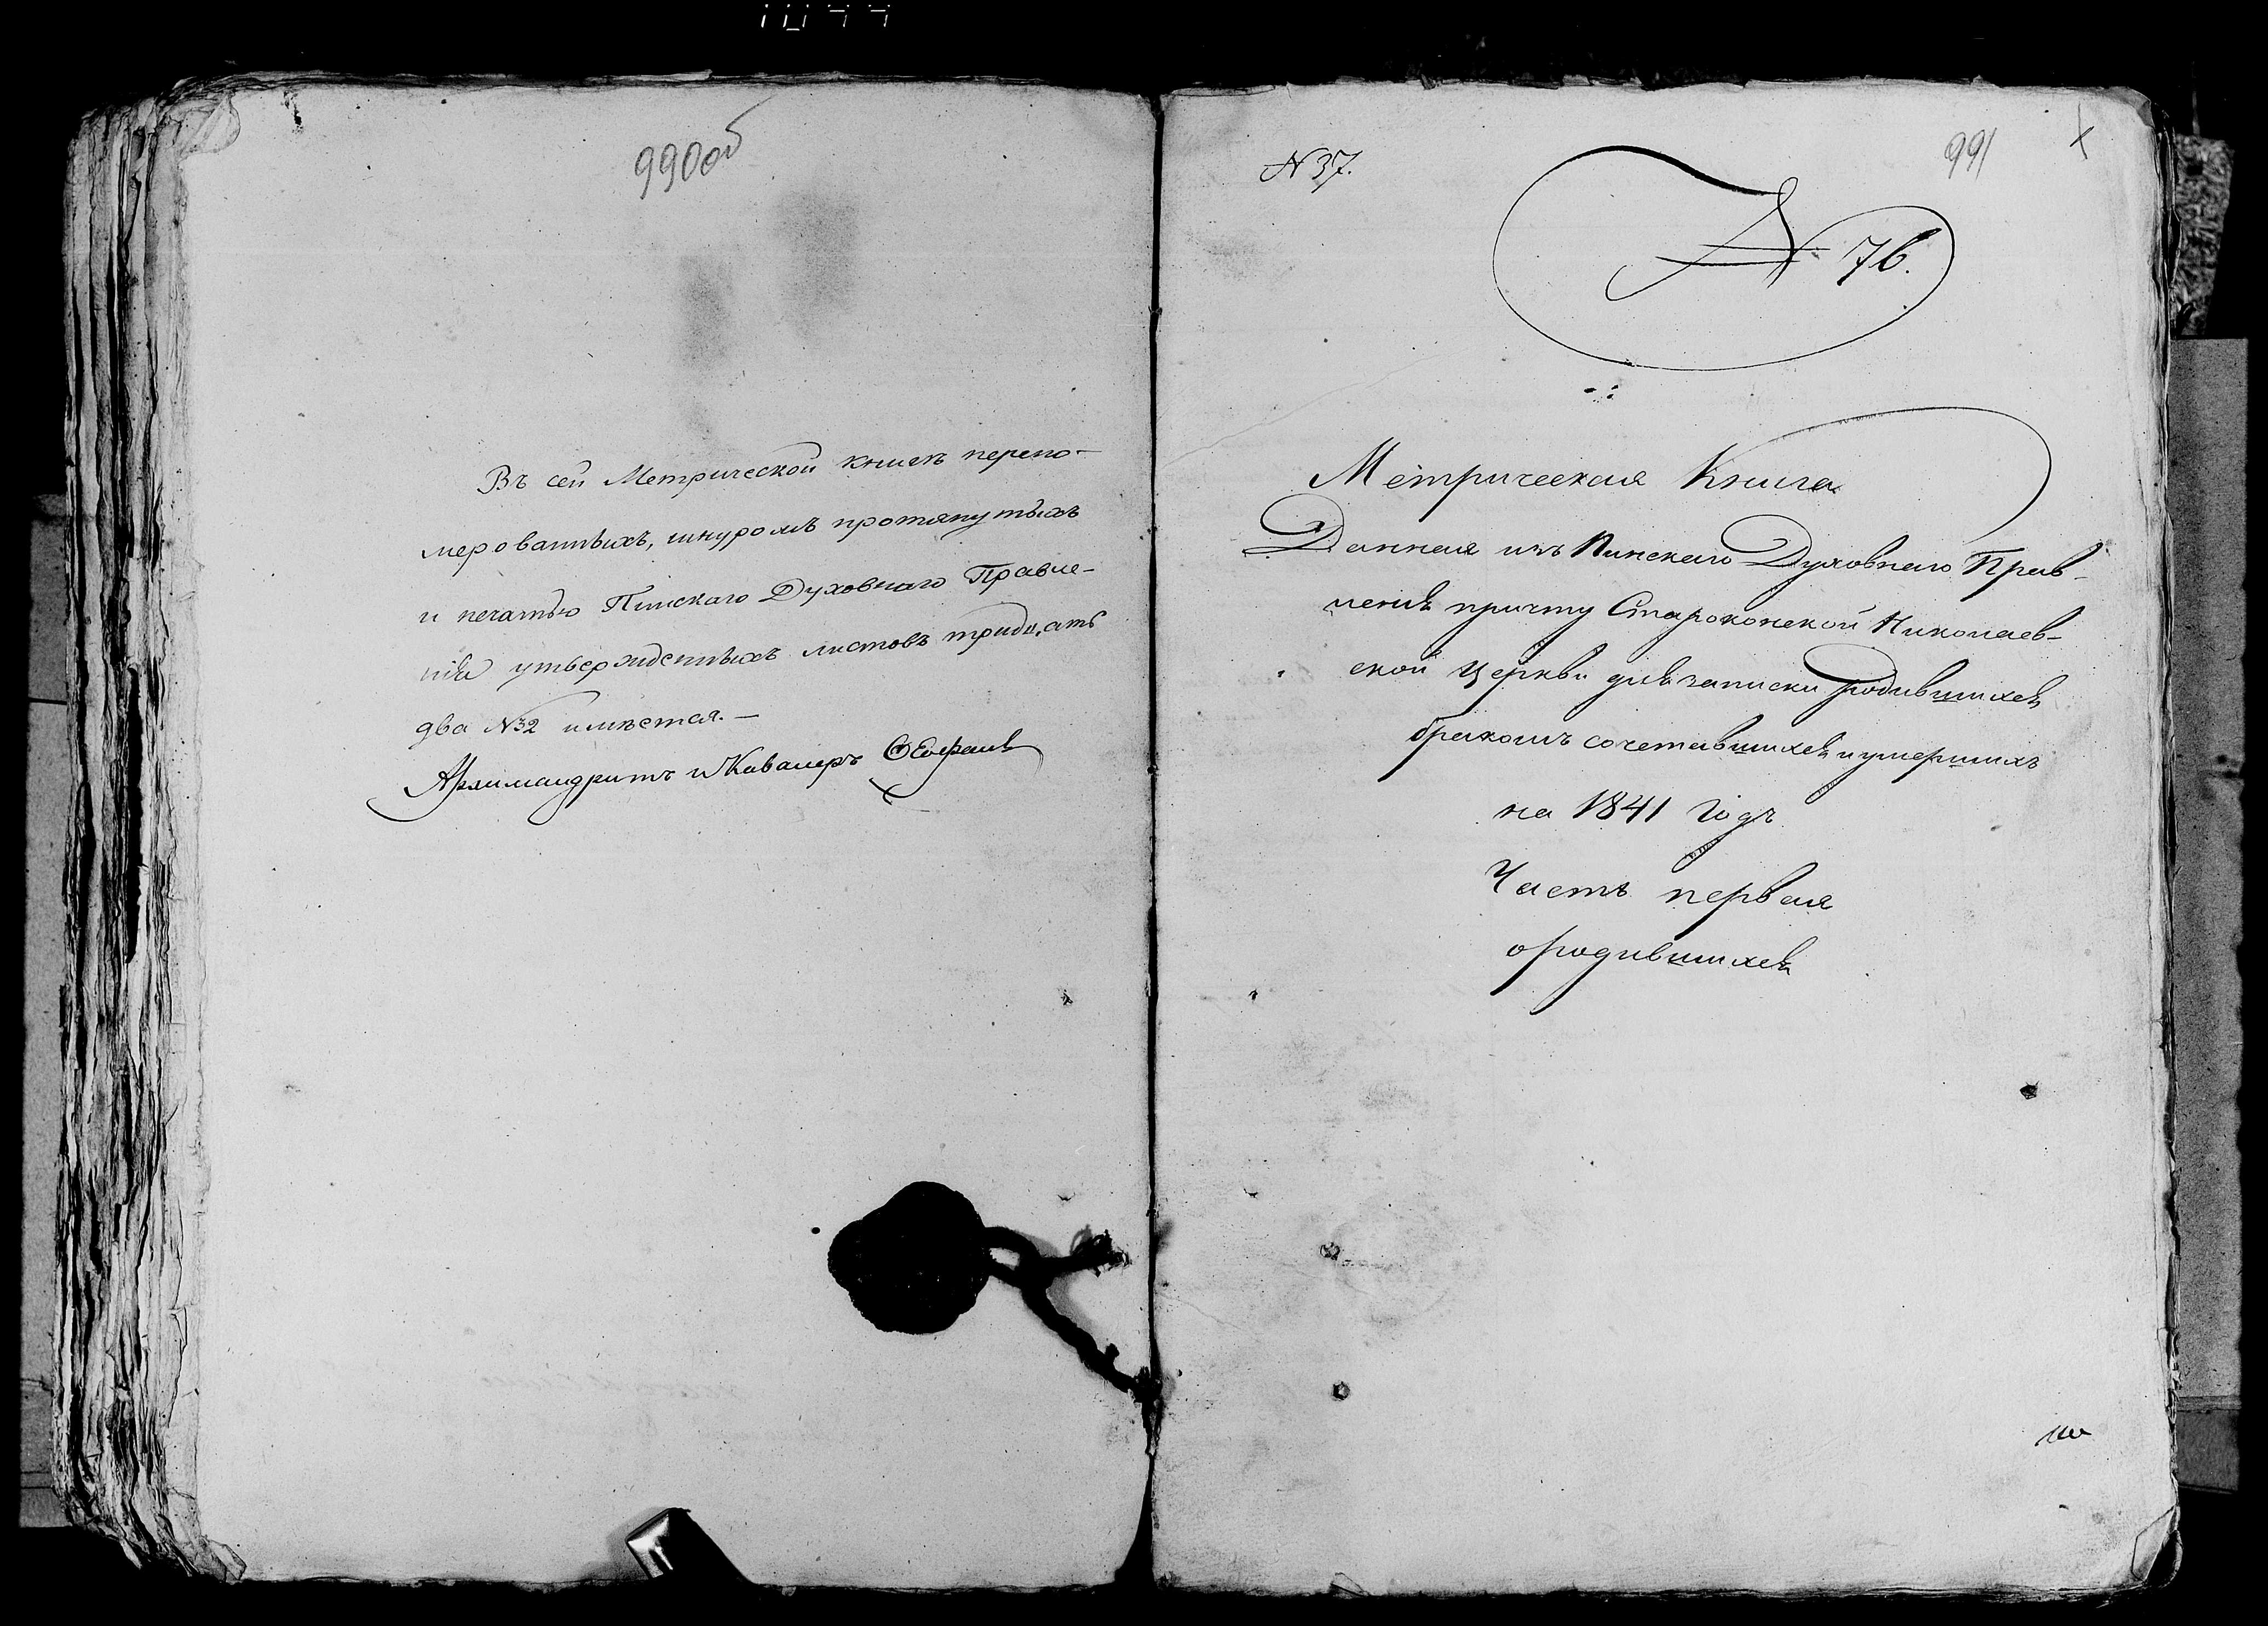 990об
Въ сей Метрической книгѣ перено-
мерованныхъ, шнуромъ протянутыхъ
и печатью Пинскаго Духовнаго Правле-
нія утвержденныхъ листовъ тридцать
два №32 имѣется. —
Архимандритъ и Кавалеръ
991
N 37.
№ 76.
Метрическая Книга
Данная изъ Пинскаго Духовнаго Прав-
ленія причту Староконской Николаев-
ской Церкви для записки родившихся
бракомъ сочетавшихся и умершихъ
на 1841 Годъ
Часть первая
о родившихся